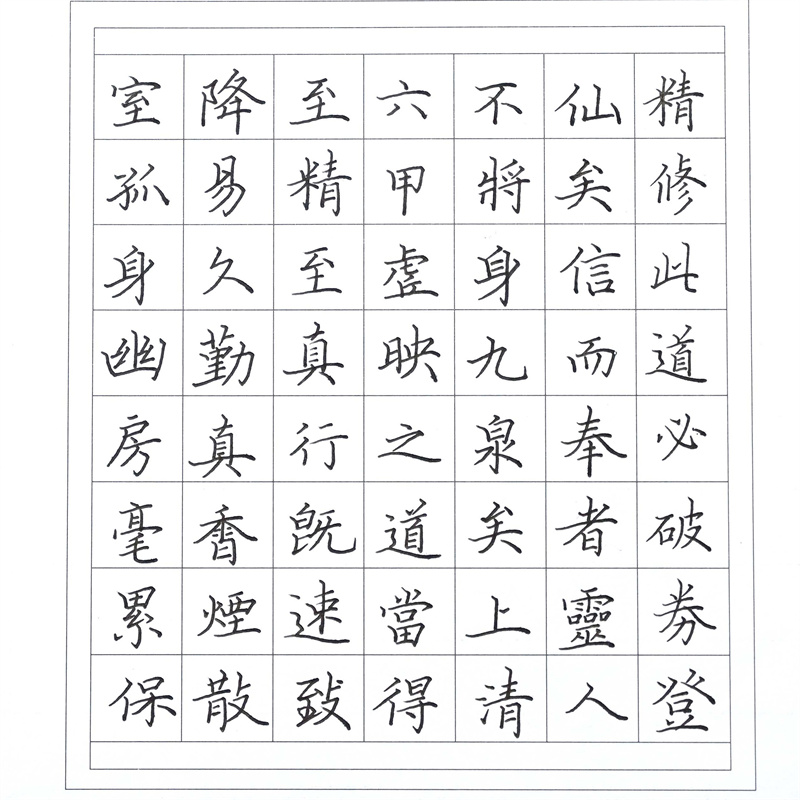 精修此道必破券登
仙矣信而奉者靈人
不將身九泉矣上清
六甲虚映之道當得
至精至真行既速致
降易久勤真香煙散
室孤身幽房毫累保